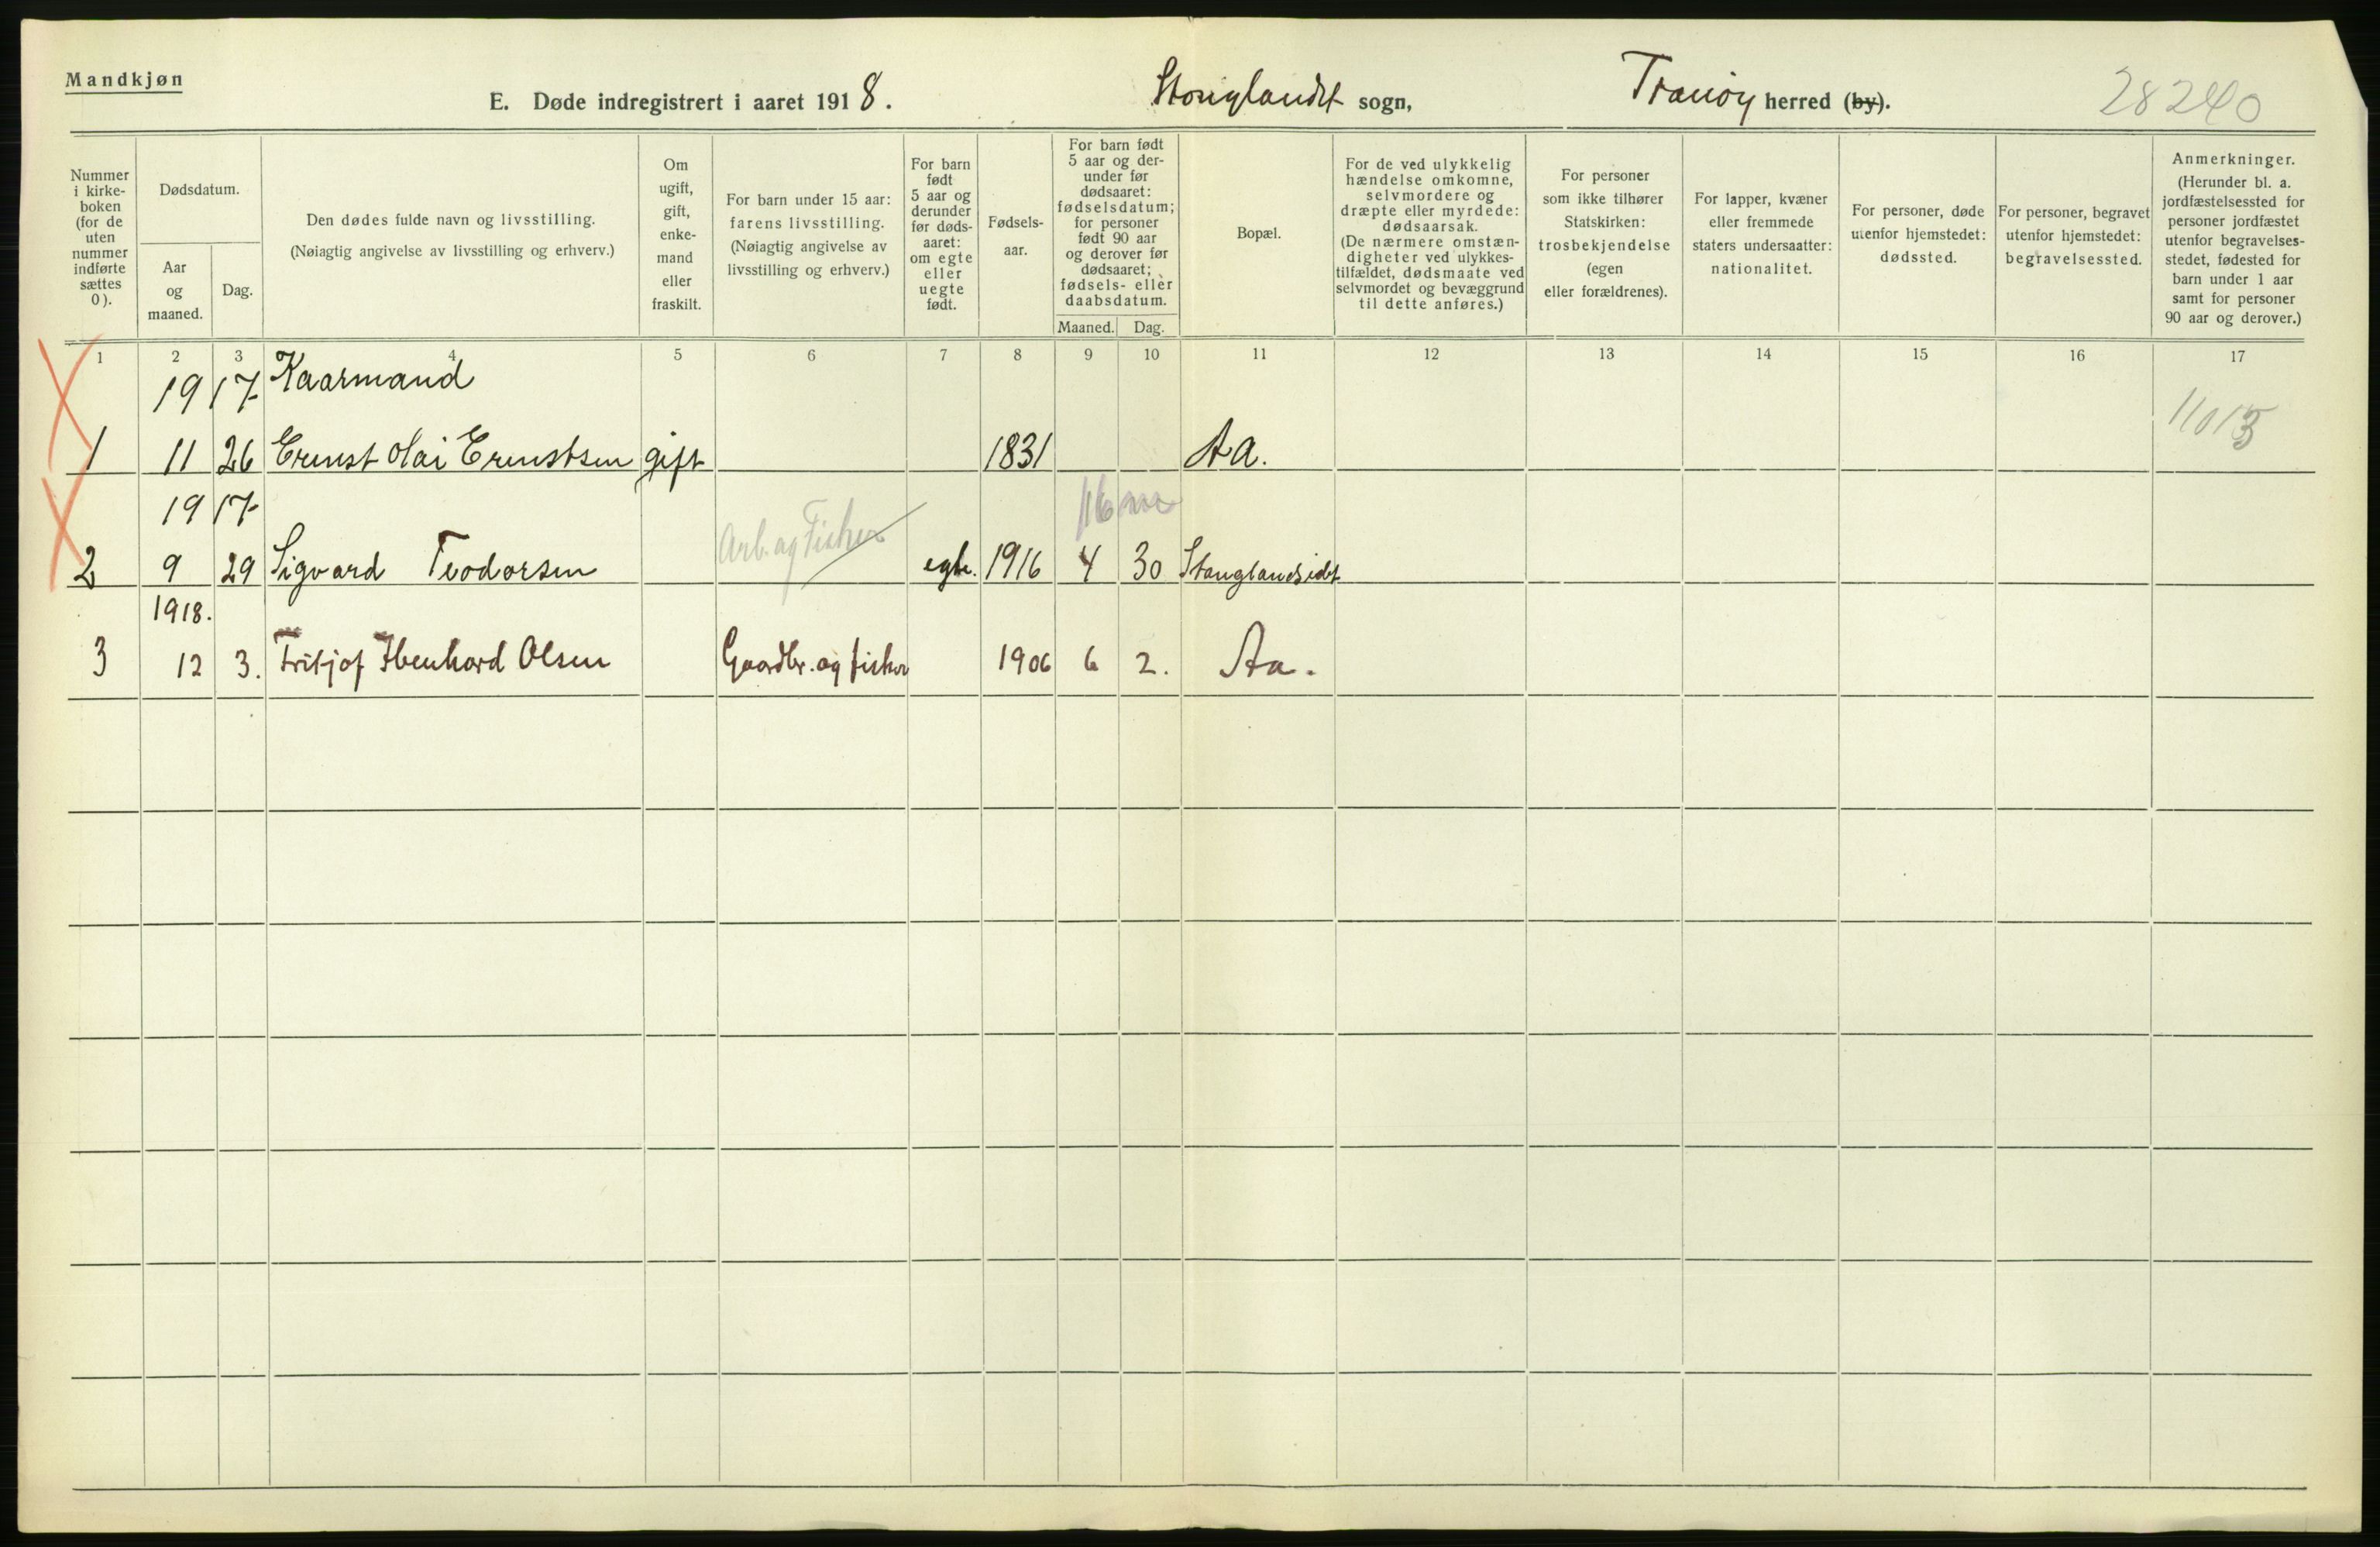 Mandkjøn
E. Døde indregistrert i aaret 1918. Stonglandet sogn, Tranöy herred (by).
28240
Nummer i kirke-boken (for de uten nummer indførte sættes 0).
Dødsdatum.
Aar og maaned.
Dag.
Den dødes fulde navn og livsstilling.
(Nøiagtig angivelse av livsstilling og erhverv.)
Om ugift, gift, enke-mand eller fraskilt.
For barn under 15 aar: farens livsstilling.
(Nøiagtig angivelse av livsstilling og erhverv.)
For barn født 5 aar og derunder før døds-aaret: om egte eller uegte født.
Fødsels-aar.
For barn født 5 aar og der-under før dødsaaret: fødselsdatum; for personer født 90 aar og derover før dødsaaret; fødsels- eller daabsdatum.
Maaned. Dag.
Bopæl.
For de ved ulykkelig hændelse omkomne, selvmordere og dræpte eller myrdede: dødsaarsak.
(De nærmere omstæn-digheter ved ulykkes-tilfældet, dødsmaate ved selvmordet og bevæggrund til dette anføres.)
For personer som ikke tilhører Statskirken: trosbekjendelse (egen eller forældrenes).
For lapper, kvæner eller fremmede staters undersaatter: nationalitet.
For personer, døde utenfor hjemstedet: dødssted.
For personer, begravet utenfor hjemstedet: begravelsessted.
Anmerkninger.
(Herunder bl. a. jordfæstelsessted for personer jordfæstet utenfor begravelses-stedet, fødested for barn under 1 aar samt for personer 90 aar og derover.)
1 2 3 4 5 6 7 8 9 10 11 12 13 14 15 16 17
1917 Kaarmand
1 11 26 Ernst Olai Ernstsen gift 1831 Aa.
1917
2 9 29 Sigvard Teodorsen Arb. og Fisker egte. 1916 4 30 Stonglandseidet
1918.
3 12 3. Fritjof Ibenhard Olsen Gaardbr. og fisker 1906 6 2. Aa.